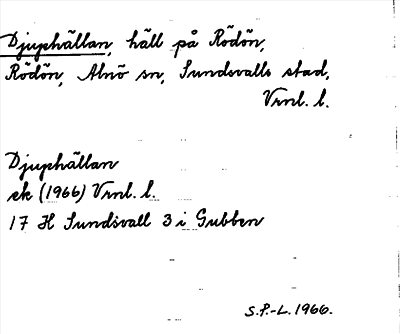 Djuphällan, häll på Rödön,
Rödön, Alnö sn, Sundsvalls stad,
Vrnl. l.
Djuphällan
ek (1966) Vrnl. l.
17 H Sundsvall 3 i Gubben
S.P.-L. 1966.